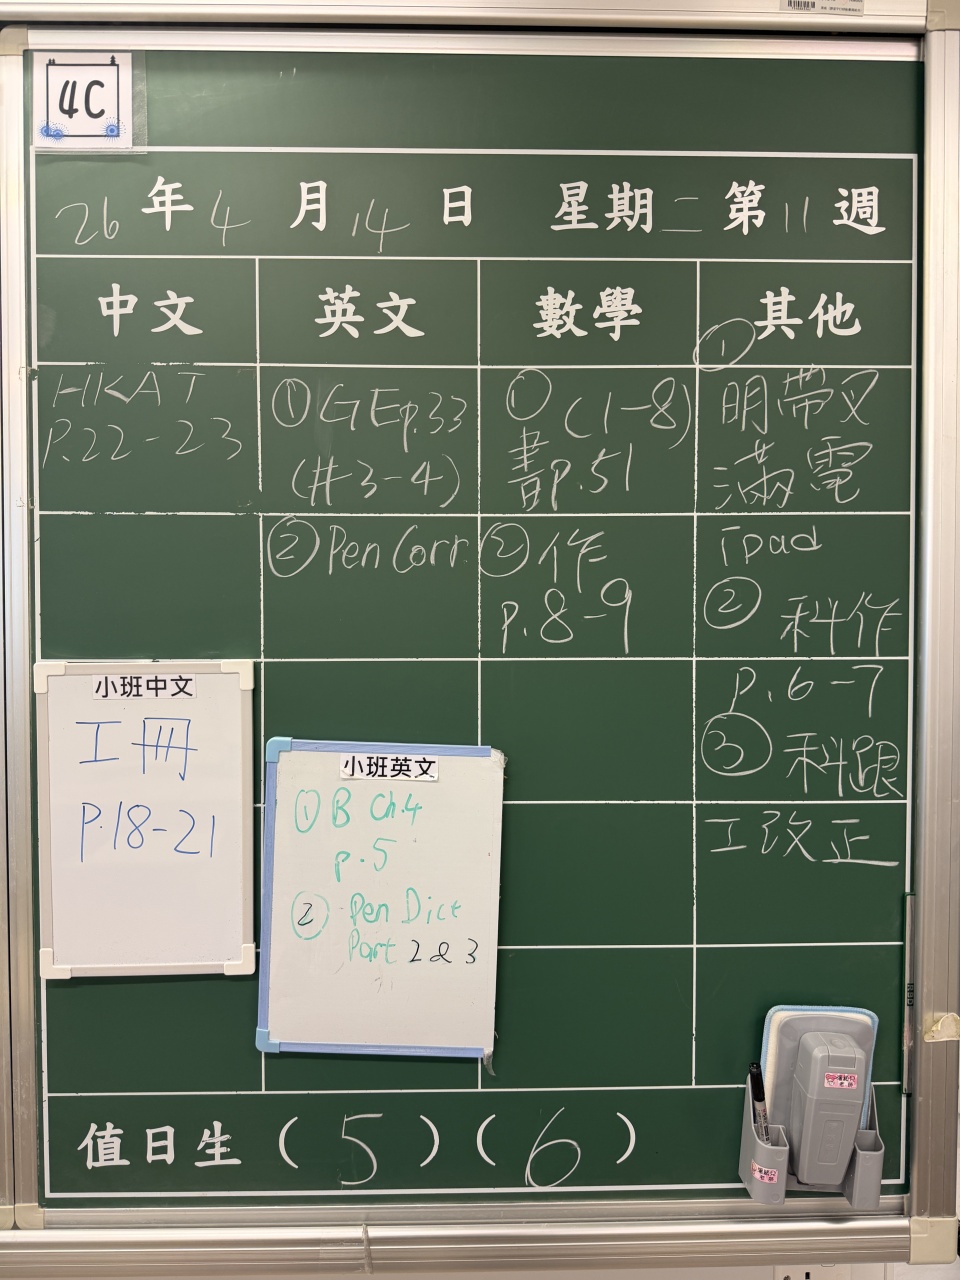 4C
26年4月14日 星期二第11週
中文 英文 數學 其他
HKAT
P.22-23
① GE p.33
(#3-4)
② Pen Corr.
① (1-8)
書p.51
② 作
p.8-9
①
明帶叉
滿電
ipad
② 科作
p.6-7
③ 科跟
工改正
小班中文
工冊
P.18-21
小班英文
① B Ch.4
p.5
② Pen Dict
Part 2 & 3
值日生 (5)(6)